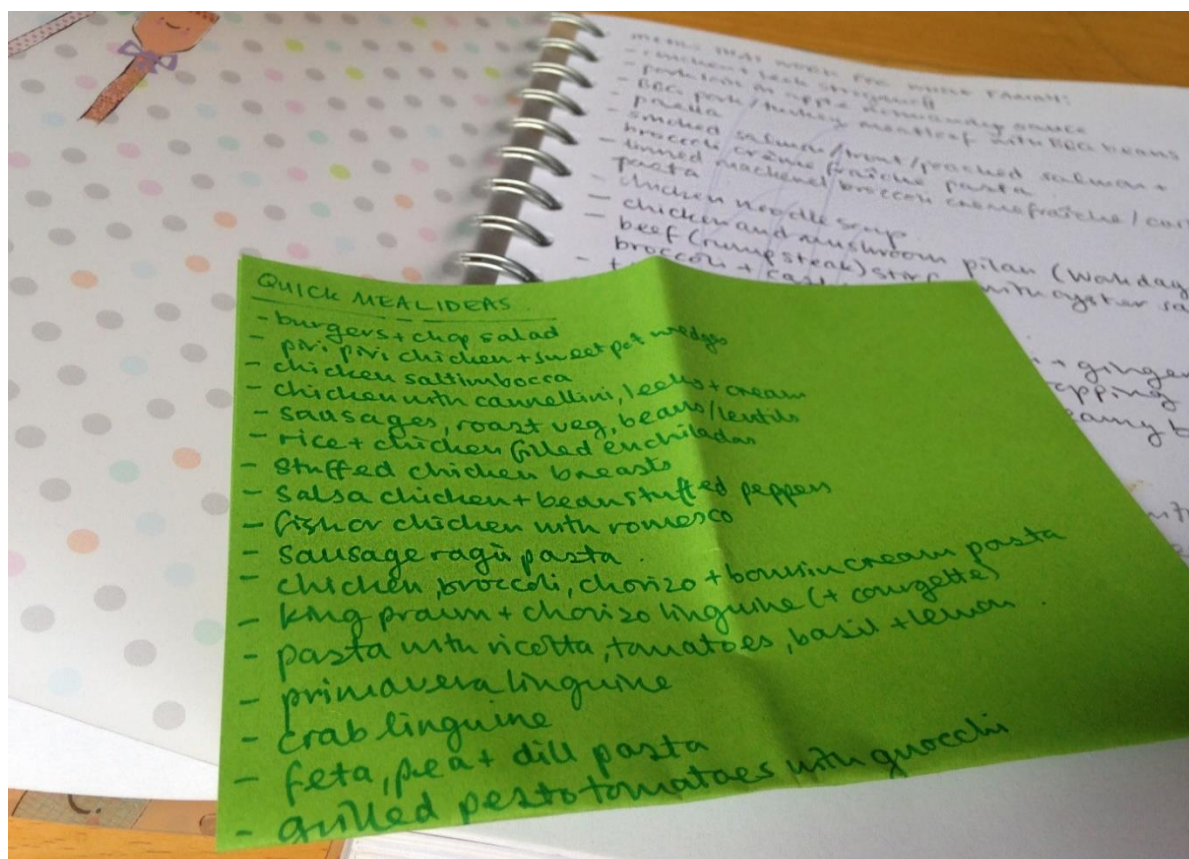 MEALS THAT WORK FOR WHOLE FAMILY:
- chicken + leek stroganoff
- pork loin in apple normandy sauce
- BBQ pork/turkey meatloaf with BBQ beans
- paella
- smoked salmon/trout/poached salmon +
broccoli crème fraîche pasta
- tinned mackerel broccoli crème fraîche /
pasta
- chicken noodle soup
- chicken and mushroom pilau (
- beef (rump steak) stir with oyster
broccoli +
+ ginger
QUICK MEAL IDEAS
- burgers + chop salad
- piri piri chicken + sweet pot wedges
- chicken saltimbocca
- chicken with cannellini, leeks + cream
- sausages, roast veg, beans/lentils
- rice + chicken filled enchiladas
- stuffed chicken breasts
- salsa chicken + bean stuffed peppers
- fish or chicken with romesco
- sausage ragù pasta
- chicken, broccoli, chorizo + boursin cream pasta
- king prawn + chorizo linguine (+ courgette)
- pasta with ricotta, tomatoes, basil + lemon
- primavera linguine
- crab linguine
- feta, pea + dill pasta
- grilled pesto tomatoes with gnocchi